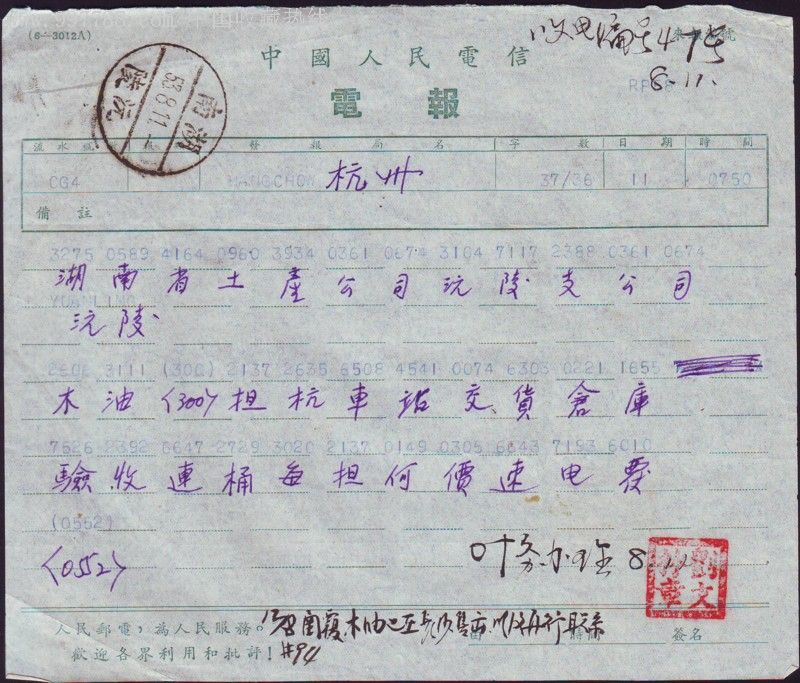 (6—3012A)
收文电编号47号
8.11.
中國人民電信
RP
電報
湖南
53.8.11
沅陵
流水號 發報局名 字數 日期 時間
CG4 HANGCHOW 杭州 37/36 11 0750
備註
3275 0589 4164 0960 3934 0361 0674 3104 7117 2388 0361 0674
湖南省土產公司沅陵支公司
YUANLING
沅陵
2606 3111 (300) 2137 2635 6508 4541 0074 6303 0221 1655
木油〈300〉担杭車站交貨倉庫
7526 2392 0647 2729 3020 2137 0149 0305 6643 7193 6010
驗收連桶每担何價速电覆
(0552)
〈0552〉
8.11
劉文
章
人民郵電，為人民服務。
歡迎各界利用和批評！
#94
時間 簽名